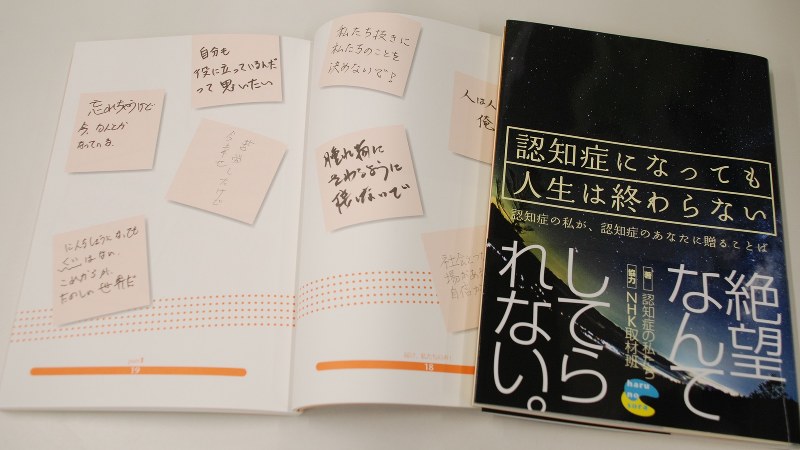 自分も
役に立っているんだ
って思いたい
忘れちゃうけど
今、なんとか
なっている。
くいはない。
これからが、
たのしい世界だ
19
私たち抜きに
私たちのことを
決めないで!
人は人
俺
腫れ物に
さわるように
接しないで
18
認知症になっても
人生は終わらない
認知症の私が、認知症のあなたに贈ることば
絶望
なんて
してら
れない。
著 認知症の私たち
協力 NHK取材班
haru
no
sora